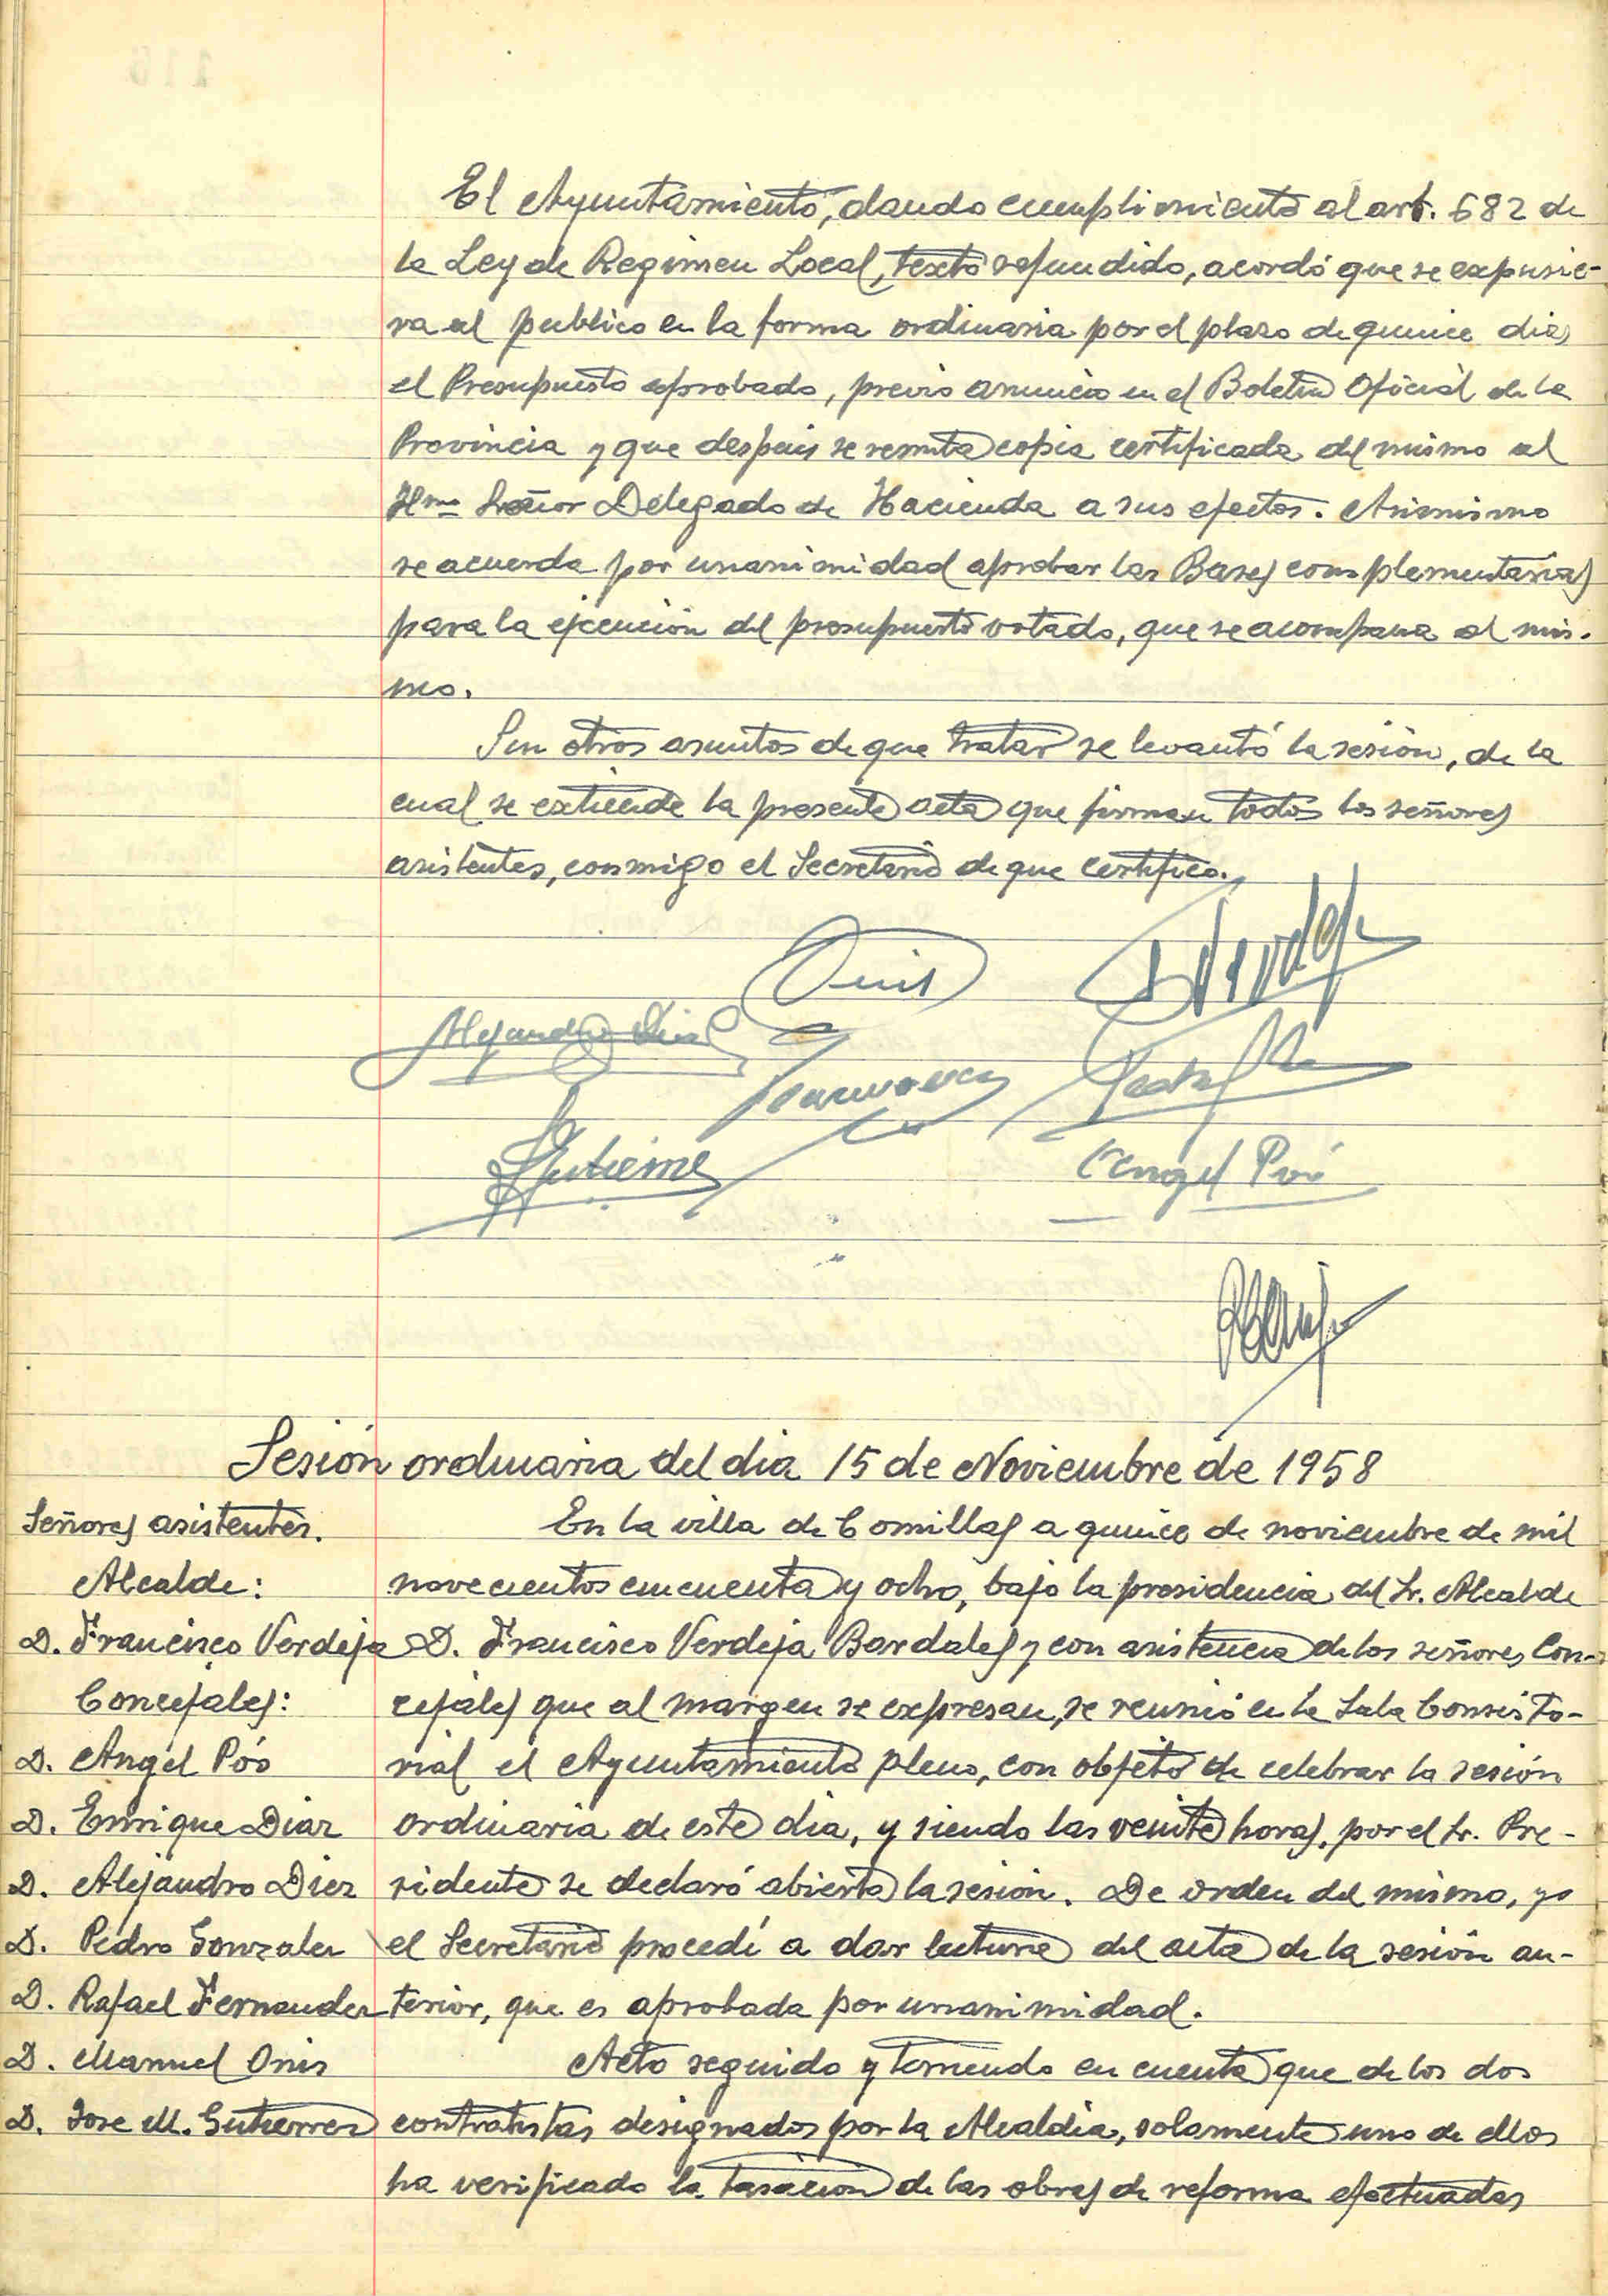 El Ayuntamiento, dando cumplimiento al art. 682 de
la Ley de Regimen Local, texto refundido, acordó que se expusie-
ra al publico en la forma ordinaria por el plazo de quince dias
el Presupuesto aprobado, previo anuncio en el Boletin Oficial de la
Provincia y que despues se remita copia certificada del mismo al
Ilmo Señor Delegado de Hacienda a sus efectos. Asimismo
se acuerda por unanimidad aprobar las Bases complementarias
para la ejecución del presupuesto votado, que se acompaña al mis-
mo.
Sin otros asuntos de que tratar se levantó la sesión, de la
cual se extiende la presente acta que firman todos los señores
asistentes, conmigo el Secretario de que certifico.
Onis
Alejandro Diez
Gutierrez
Angel Pós
Sesión ordinaria del dia 15 de Noviembre de 1958
Señores asistentes.
Alcalde:
D. Francisco Verdeja
Concejales:
D. Angel Pós
D. Enrique Diaz
D. Alejandro Diez
D. Pedro Gonzalez
D. Rafael Fernandez
D. Manuel Onis
D. Jose M. Gutierrez
En la villa de Comillas a quince de noviembre de mil
novecientos cincuenta y ocho, bajo la presidencia del Sr. Alcalde
D. Francisco Verdeja Bardales y con asistencia de los señores Con-
cejales que al margen se expresan, se reunió en la Sala Consisto-
rial el Ayuntamiento pleno, con objeto de celebrar la sesión
ordinaria de este dia, y siendo las veinte horas, por el Sr. Pre-
sidente se declaró abierta la sesión. De orden del mismo, yo
el Secretario procedí a dar lectura del acta de la sesión an-
terior, que es aprobada por unanimidad.
Acto seguido y teniendo en cuenta que de los dos
contratistas designados por la Alcaldia, solamente uno de ellos
ha verificado la tasación de las obras de reforma efectuadas